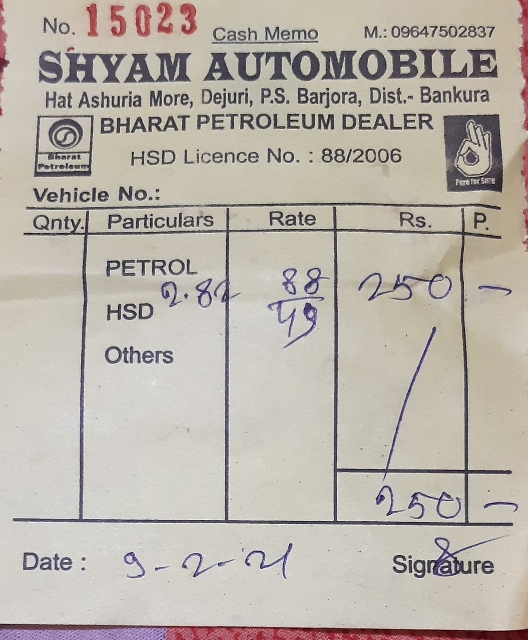 No. 15023 Cash Memo M.: 09647502837
SHYAM AUTOMOBILE
Hat Ashuria More, Dejuri, P.S. Barjora, Dist.- Bankura
BHARAT PETROLEUM DEALER
Bharat Petroleum
HSD Licence No. : 88/2006
Pure for Sure
Vehicle No.:
Qnty. Particulars Rate Rs. P.
PETROL
2.82 88 250 -
HSD 49
Others
250 -
Date : 9-2-21 Signature